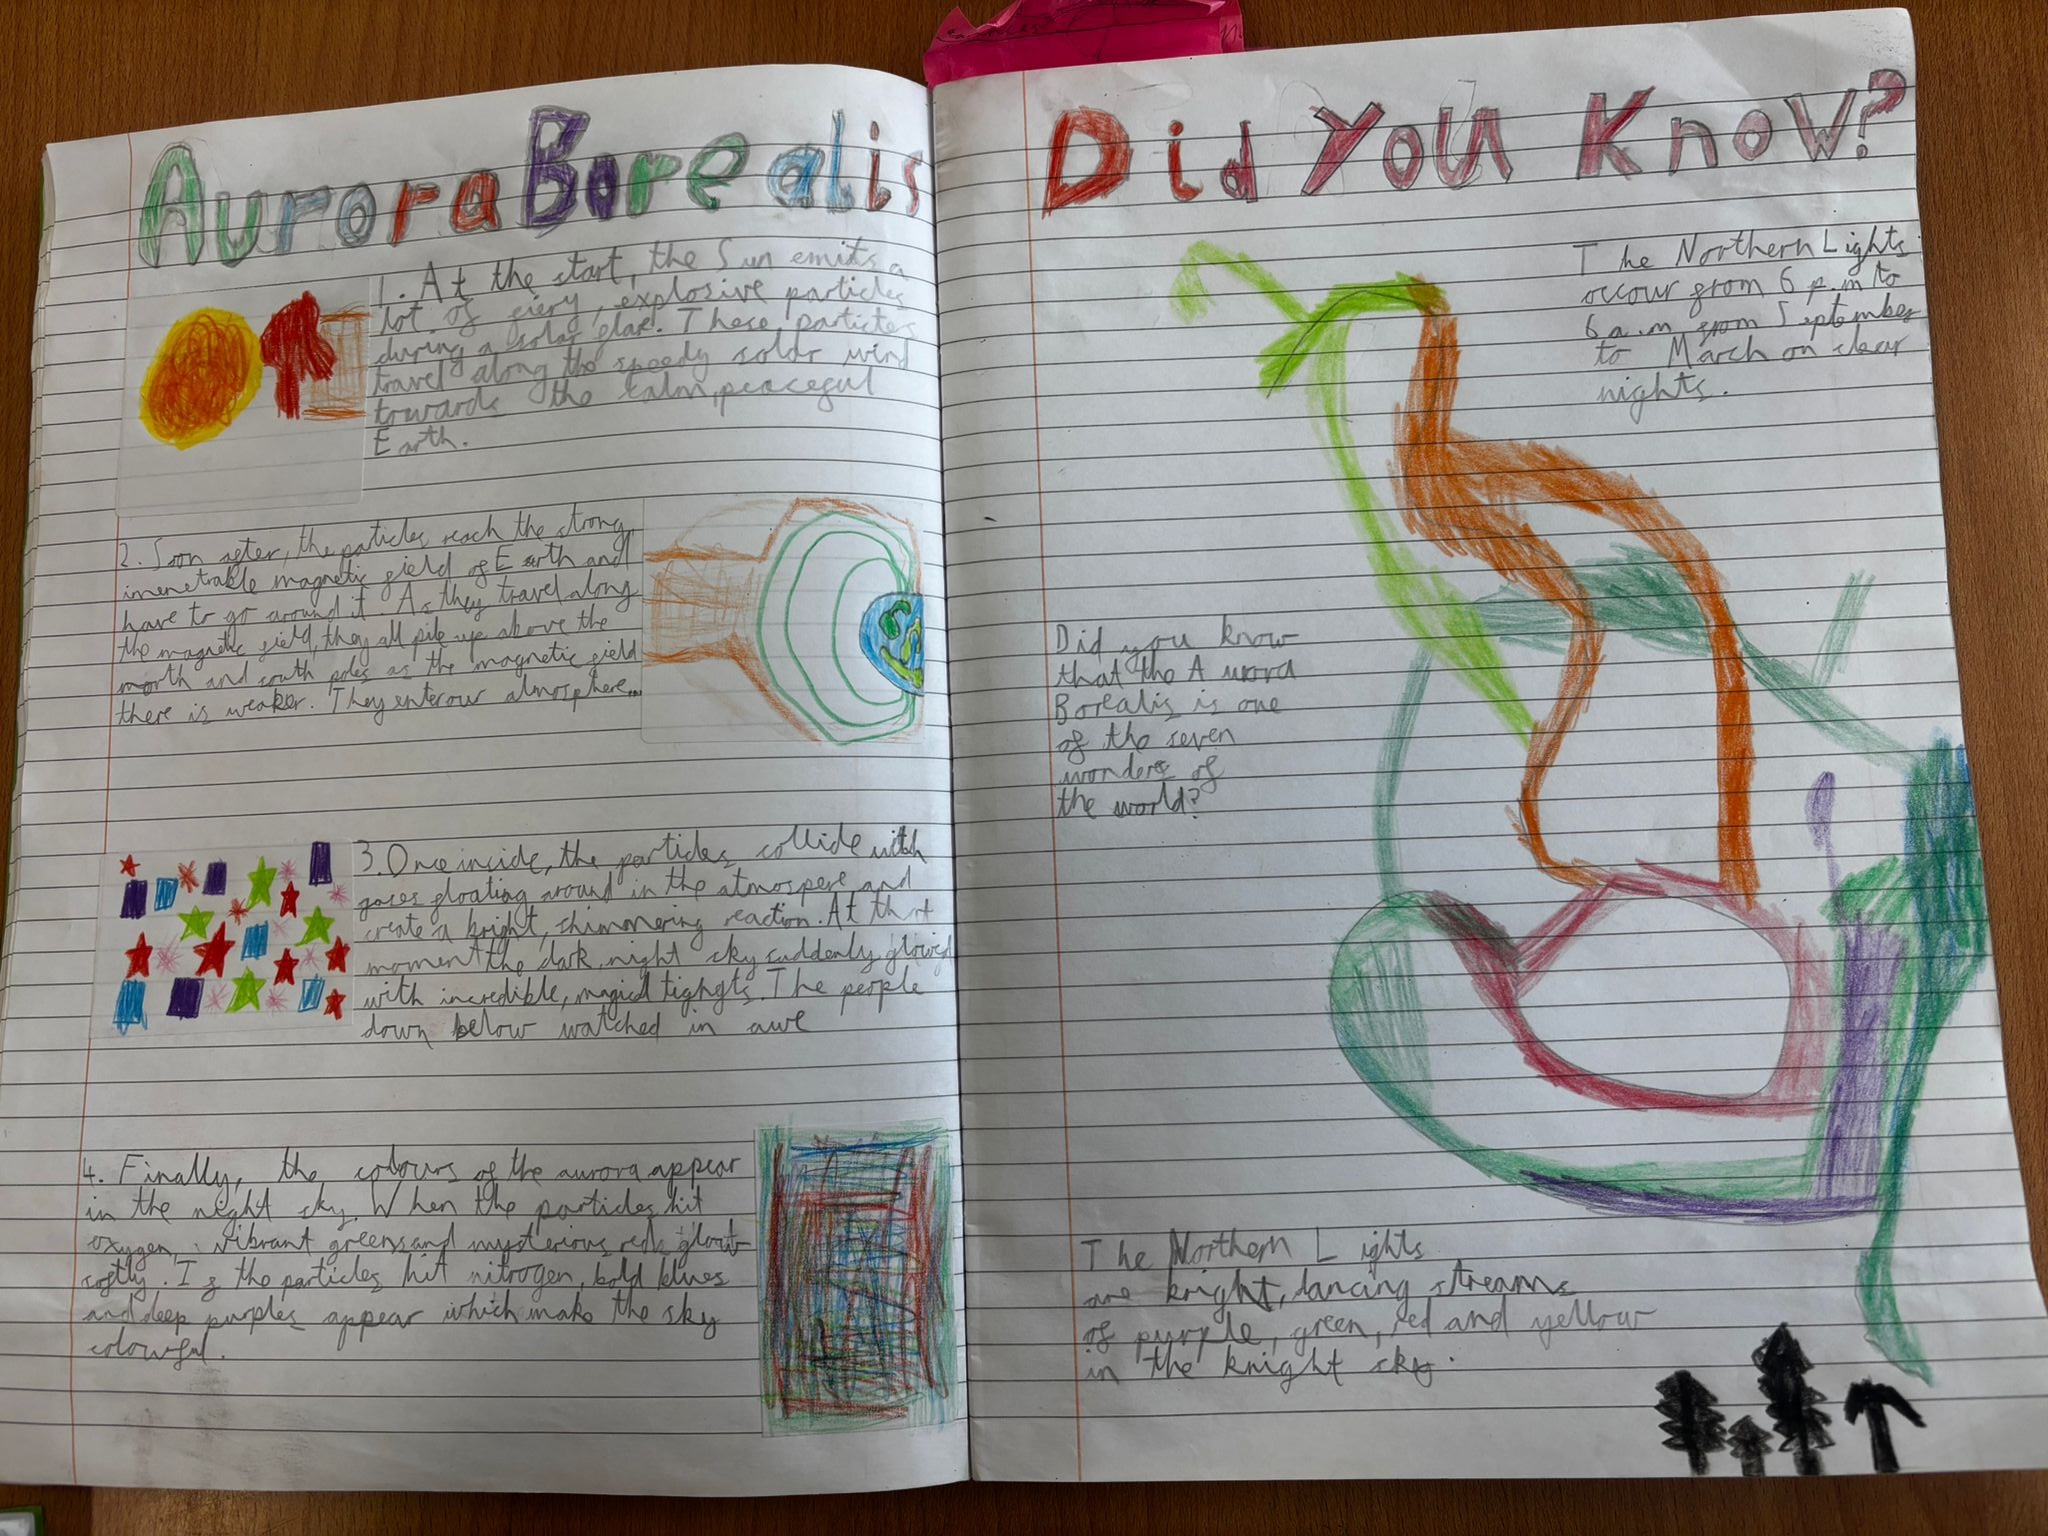 Aurora Borealis
1. At the start, the Sun emits a
lot of fiery, explosive particles
during a solar flare. These particles
travel along the speedy solar wind
towards the calm, peaceful
Earth.
2. Soon after, the paticles reach the strong,
inenetrable magnetic field of Earth and
have to go around it. As they travel along
the magnetic field, they all pile up above the
north and south poles as the magnetic field
there is weaker. They enter our atmosphere...
3. Once inside, the particles collide with
gases floating around in the atmospere and
create a bright, shimmering reaction. At that
moment the dark night sky suddenly
with incredible, magical. The people
down below watched in awe
4. Finally, the colours of the aurora appear
in the night sky. When the particles hit
oxygen, vibrant greens and mysterious reds glow
softly. If the particles hit nitrogen, bold blues
and deep purples appear which make the sky
colourful.
Did You Know?
The Northern Lights
occour from 6 p.m to
6 a.m from September
to March on clear
nights.
Did you know
that the Aurora
Borealis is one
of the seven
wonders of
the world?
The Northern Lights
are bright, dancing streams
of purple, green, red and yellow
in the knight sky.